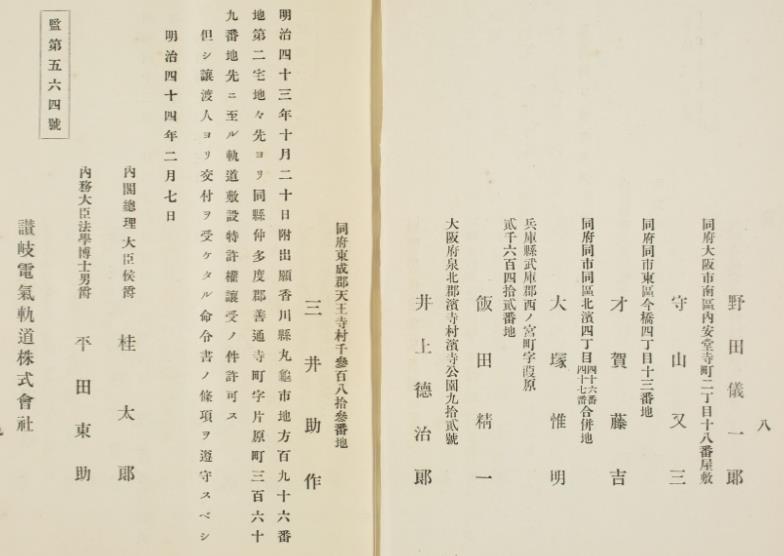 八
野田儀一郞
同府大阪市南區內安堂寺町二丁目十八番屋敷
守山又三
同府同市東區今橋四丁目十三番地
才賀藤吉
同府同市同區北濱四丁目四十六番四十七番合併地
大塚惟明
兵庫縣武庫郡西ノ宮町字葭原
貳千六百四拾貳番地
飯田精一
大阪府泉北郡濱寺村濱寺公園九拾貳號
井上德治郞
同府東成郡天王寺村千參百八拾參番地
三井助作
明治四十三年十月二十日附出願香川縣丸龜市地方百九十六番
地第二宅地々先ヨリ同縣仲多度郡善通寺町字片原町三百六十
九番地先ニ至ル軌道敷設特許權讓受ノ件許可ス
但シ讓渡人ヨリ交付ヲ受ケタル命令書ノ條項ヲ遵守スベシ
明治四十四年二月七日
內閣總理大臣侯爵 桂太郞
內務大臣法學博士男爵 平田東助
讃岐電氣軌道株式會社
監第五六四號